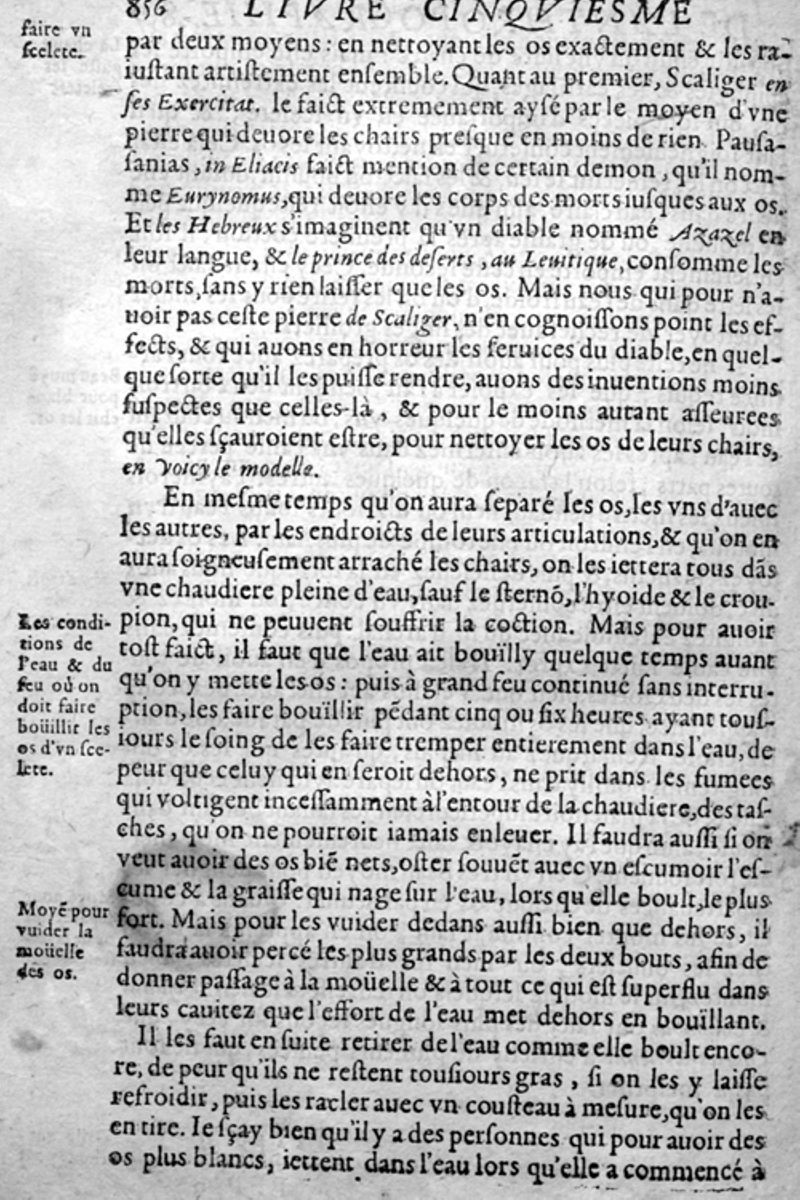 856 LIVRE CINQVIESME
faire vn
ſcelete.
par deux moyens : en nettoyant les os exactement & les ra-
iuſtant artiſtement enſemble. Quant au premier, Scaliger en
ſes Exercitat. le faict extremement ayſé par le moyen d'vne
pierre qui deuore les chairs preſque en moins de rien. Pauſa-
ſanias, in Eliacis faict mention de certain demon, qu'il nom-
me Eurynomus, qui deuore les corps des morts iuſques aux os.
Et les Hebreux s'imaginent qu'vn diable nommé Azazel en
leur langue, & le prince des deſerts, au Leuitique, conſomme les
morts, ſans y rien laiſſer que les os. Mais nous qui pour n'a-
uoir pas ceſte pierre de Scaliger, n'en cognoiſſons point les ef-
fects, & qui auons en horreur les ſeruices du diable, en quel-
que ſorte qu'il les puiſſe rendre, auons des inuentions moins
ſuſpectes que celles-là, & pour le moins autant aſſeurees
qu'elles ſçauroient eſtre, pour nettoyer les os de leurs chairs,
en voicy le modelle.
En meſme temps qu'on aura ſeparé les os, les vns d'auec
les autres, par les endroicts de leurs articulations, & qu'on en
aura ſoigneuſement arraché les chairs, on les iettera tous dãs
vne chaudiere pleine d'eau, ſauf le ſternõ, l'hyoide & le crou-
pion, qui ne peuuent ſouffrir la coction. Mais pour auoir
toſt faict, il faut que l'eau ait bouïlly quelque temps auant
qu'on y mette les os : puis à grand feu continué ſans interru-
ption, les faire bouïllir pẽdant cinq ou ſix heures ayant touſ-
iours le ſoing de les faire tremper entierement dans l'eau, de
peur que celuy qui en ſeroit dehors, ne prit dans les fumees
qui voltigent inceſſamment à l'entour de la chaudiere, des taſ-
ches, qu'on ne pourroit iamais enleuer. Il faudra auſſi ſi on
veut auoir des os biẽ nets, oſter ſouuẽt auec vn eſcumoir l'eſ-
cume & la graiſſe qui nage ſur l'eau, lors qu'elle boult, le plus
fort. Mais pour les vuider dedans auſſi bien que dehors, il
faudra auoir percé les plus grands par les deux bouts, afin de
donner paſſage à la moüelle & à tout ce qui eſt ſuperflu dans
leurs cauitez que l'effort de l'eau met dehors en bouïllant.
Il les faut en ſuite retirer de l'eau comme elle boult enco-
re, de peur qu'ils ne reſtent touſiours gras, ſi on les y laiſſe
refroidir, puis les racler auec vn couſteau à meſure, qu'on les
en tire. Ie ſçay bien qu'il y a des perſonnes qui pour auoir des
os plus blancs, iettent dans l'eau lors qu'elle a commencé à
Les condi-
tions de
l'eau & du
feu où on
doit faire
boüillir les
os d'vn ſce-
lete.
Moyẽ pour
vuider la
moüelle
des os.